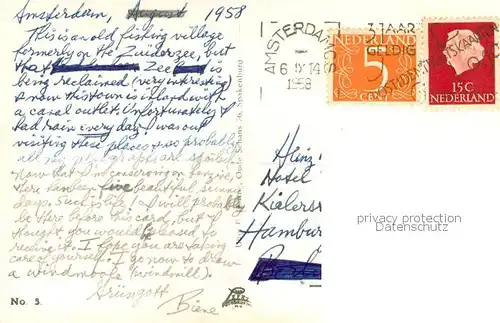 Amsterdam, August 1958
This is an old fishing village
formerly on the Zuiderzee, but
that Zee is
being reclaimed (very interesting)
& now this town is inland with
a canal outlet. Unfortunately I
had rain every day I was out
visiting these places & so probably
all my photographs are spoiled.
now that I'm
there have been five beautiful sunny
days. Such is life! I will probably
be there before this card, but I
thought you would be pleased to
receive it. I hope you are taking
care of yourself. I go now to draw
a windmoole (windmill).
Grüssgott
Biene
No. 5.
Oude Schans Spakenburg
AMSTERDAM C.S.
6 IX 14
1958
3 JAAR
GELDIG
NEDERLAND
5
CENT
15 C
NEDERLAND
Heinz
Hotel
Kielerst
Hamburg
privacy protection
Datenschutz